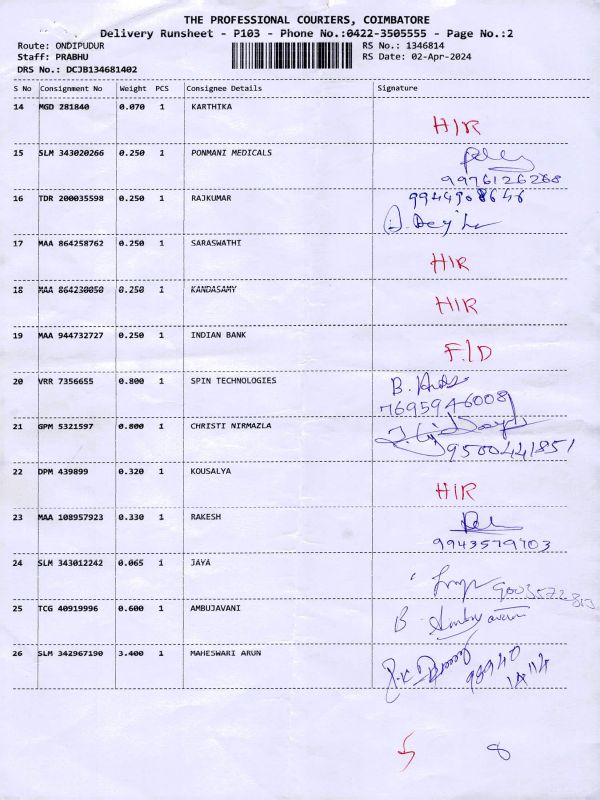 THE PROFESSIONAL COURIERS, COIMBATORE
Delivery Runsheet - P103 - Phone No.:0422-3505555 - Page No.:2
Route: ONDIPUDUR RS No.: 1346814
Staff: PRABHU RS Date: 02-Apr-2024
DRS No.: DCJB134681402
S No Consignment No Weight PCS Consignee Details Signature
14 MGD 281840 0.070 1 KARTHIKA
H/R
15 SLM 343020266 0.250 1 PONMANI MEDICALS
9976126268
16 TDR 200035598 0.250 1 RAJKUMAR 9944908646
17 MAA 864258762 0.250 1 SARASWATHI
H/R
18 MAA 864230050 0.250 1 KANDASAMY
H/R
19 MAA 944732727 0.250 1 INDIAN BANK
F/D
20 VRR 7356655 0.800 1 SPIN TECHNOLOGIES B.
7695946008
21 GPM 5321597 0.800 1 CHRISTI NIRMAZLA
9500441851
22 DPM 439899 0.320 1 KOUSALYA
H/R
23 MAA 108957923 0.330 1 RAKESH
9943579703
24 SLM 343012242 0.065 1 JAYA
25 TCG 40919996 0.600 1 AMBUJAVANI
B.
26 SLM 342967190 3.400 1 MAHESWARI ARUN
5 8